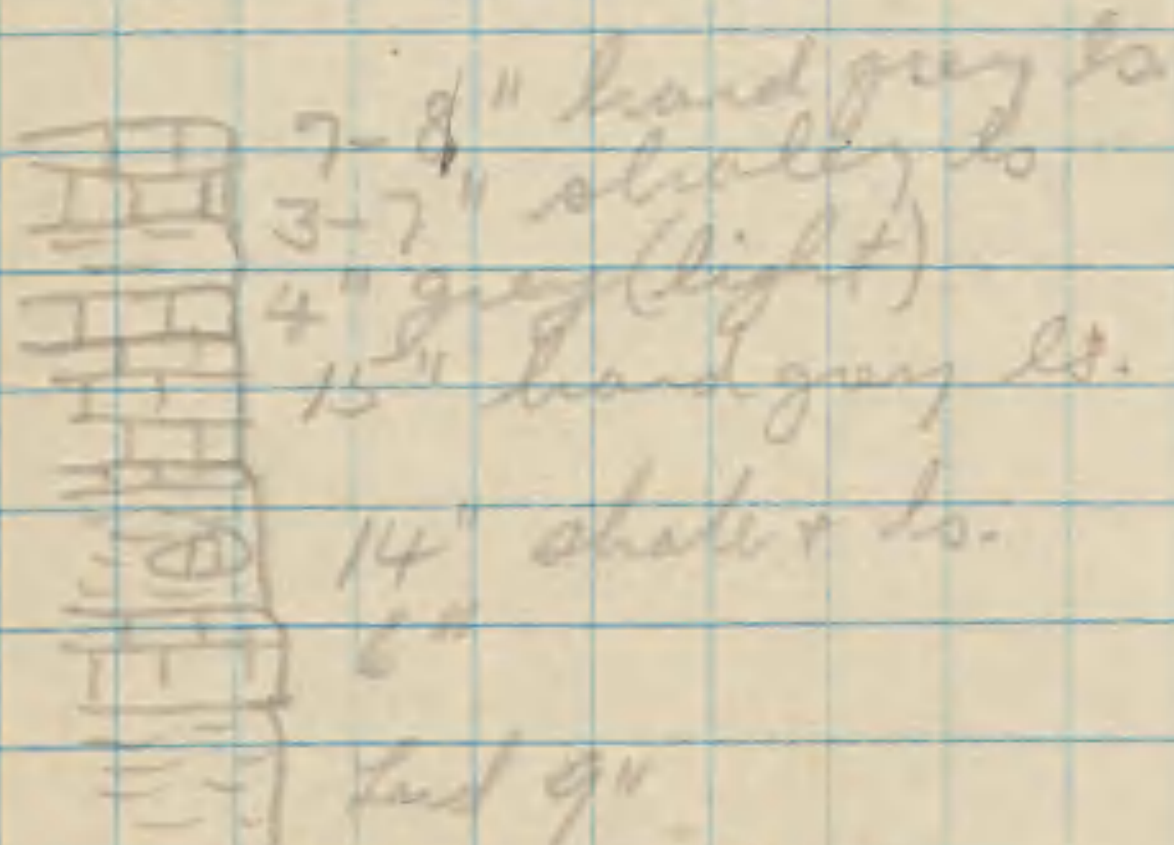 7-8" hard grey ls.
3-7" shaley ls
4" grey (light)
15" hard grey ls.
14" shale + ls.
6"
9"